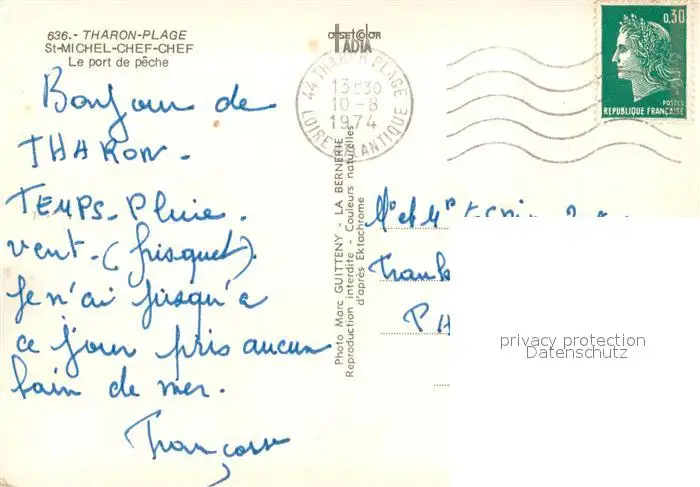 636.- THARON-PLAGE
St-MICHEL-CHEF-CHEF
Le port de pêche
Bonjour de
THARON.
TEMPS. Pluie.
vent. (frisquet).
Je n'ai jusqu'a
ce jour pris aucun
bain de mer.
Françoise
OFFSETCOLOR
TADIA
44 THARON PLAGE
13H30
10-8
1974
LOIRE ATLANTIQUE
0,30
POSTES
REPUBLIQUE FRANÇAISE
Photo Marc GUITTENY - LA BERNERIE
Reproduction interdite - Couleurs naturelles
d'après Ektachrome
privacy protection
Datenschutz